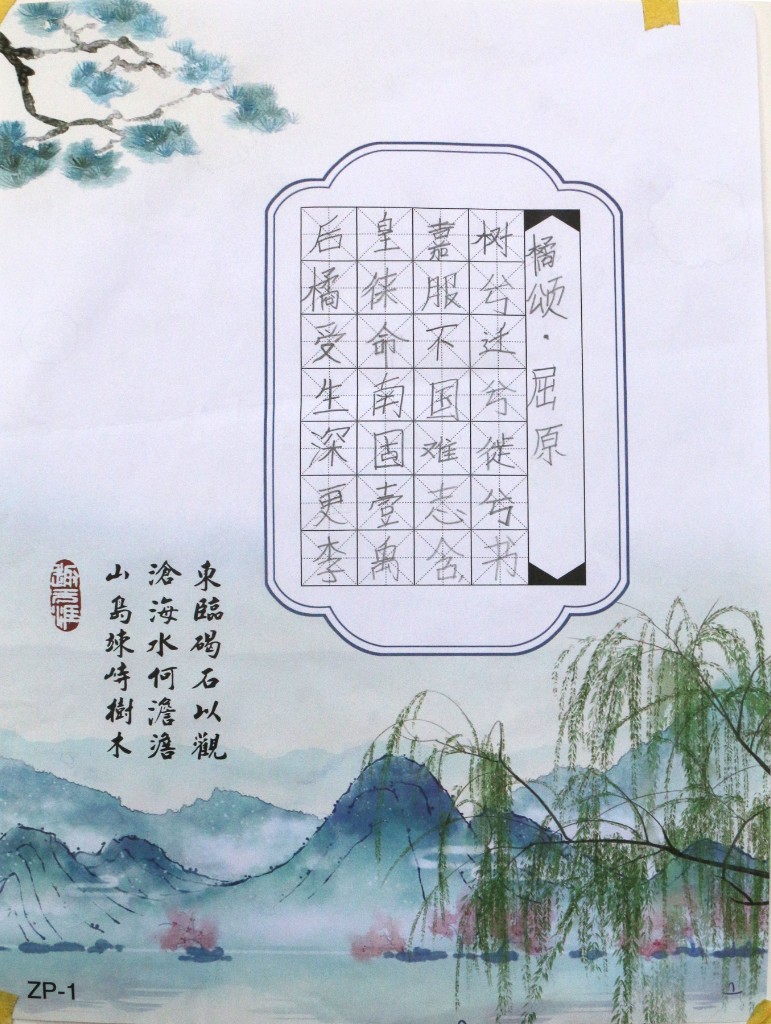 橘颂·屈原
后皇嘉树
橘徕服兮
受命不迁
生南国兮
深固难徙
更壹志兮
李禹含书
東臨碣石以觀
滄海水何澹澹
山島竦峙樹木
ZP-1